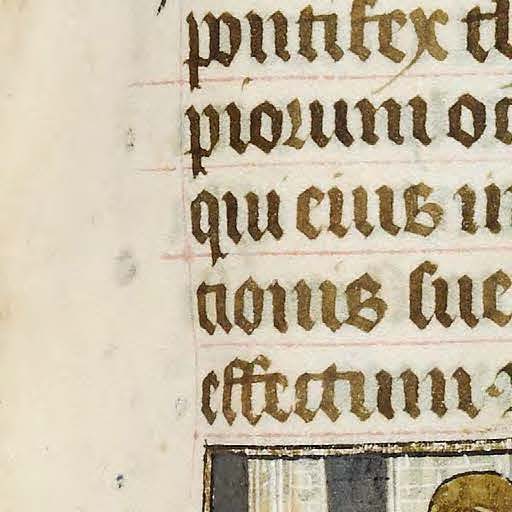 pontifex
piorum
qui eius
tionis sue
effectum.